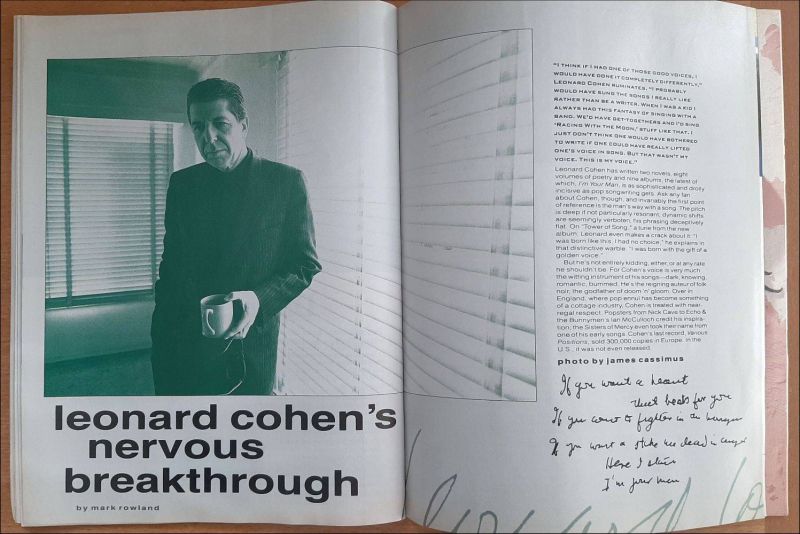 leonard cohen's
nervous
breakthrough
by mark rowland
"I THINK IF I HAD ONE OF THOSE GOOD VOICES, I
WOULD HAVE DONE IT COMPLETELY DIFFERENTLY,"
LEONARD COHEN RUMINATES. "I PROBABLY
WOULD HAVE SUNG THE SONGS I REALLY LIKE
RATHER THAN BE A WRITER. WHEN I WAS A KID I
ALWAYS HAD THIS FANTASY OF SINGING WITH A
BAND. WE'D HAVE GET-TOGETHERS AND I'D SING
'RACING WITH THE MOON,' STUFF LIKE THAT. I
JUST DON'T THINK ONE WOULD HAVE BOTHERED
TO WRITE IF ONE COULD HAVE REALLY LIFTED
ONE'S VOICE IN SONG. BUT THAT WASN'T MY
VOICE. THIS IS MY VOICE."
Leonard Cohen has written two novels, eight
volumes of poetry and nine albums, the latest of
which, I'm Your Man, is as sophisticated and drolly
incisive as pop songwriting gets. Ask any fan
about Cohen, though, and invariably the first point
of reference is the man's way with a song. The pitch
is deep if not particularly resonant, dynamic shifts
are seemingly verboten, his phrasing deceptively
flat. On "Tower of Song," a tune from the new
album, Leonard even makes a crack about it: "I
was born like this, I had no choice," he explains in
that distinctive warble. "I was born with the gift of a
golden voice."
But he's not entirely kidding, either, or at any rate
he shouldn't be. For Cohen's voice is very much
the witting instrument of his songs—dark, knowing,
romantic, bummed. He's the reigning auteur of folk
noir, the godfather of doom 'n' gloom. Over in
England, where pop ennui has become something
of a cottage industry, Cohen is treated with near
regal respect. Popsters from Nick Cave to Echo &
the Bunnymen's Ian McCulloch credit his inspira-
tion; the Sisters of Mercy even took their name from
one of his early songs. Cohen's last record, Various
Positions, sold 300,000 copies in Europe. In the
U.S., it was not even released.
photo by james cassimus
If you want a
that for you
If you want a fighter in the
If you want a
Here I
I'm your man